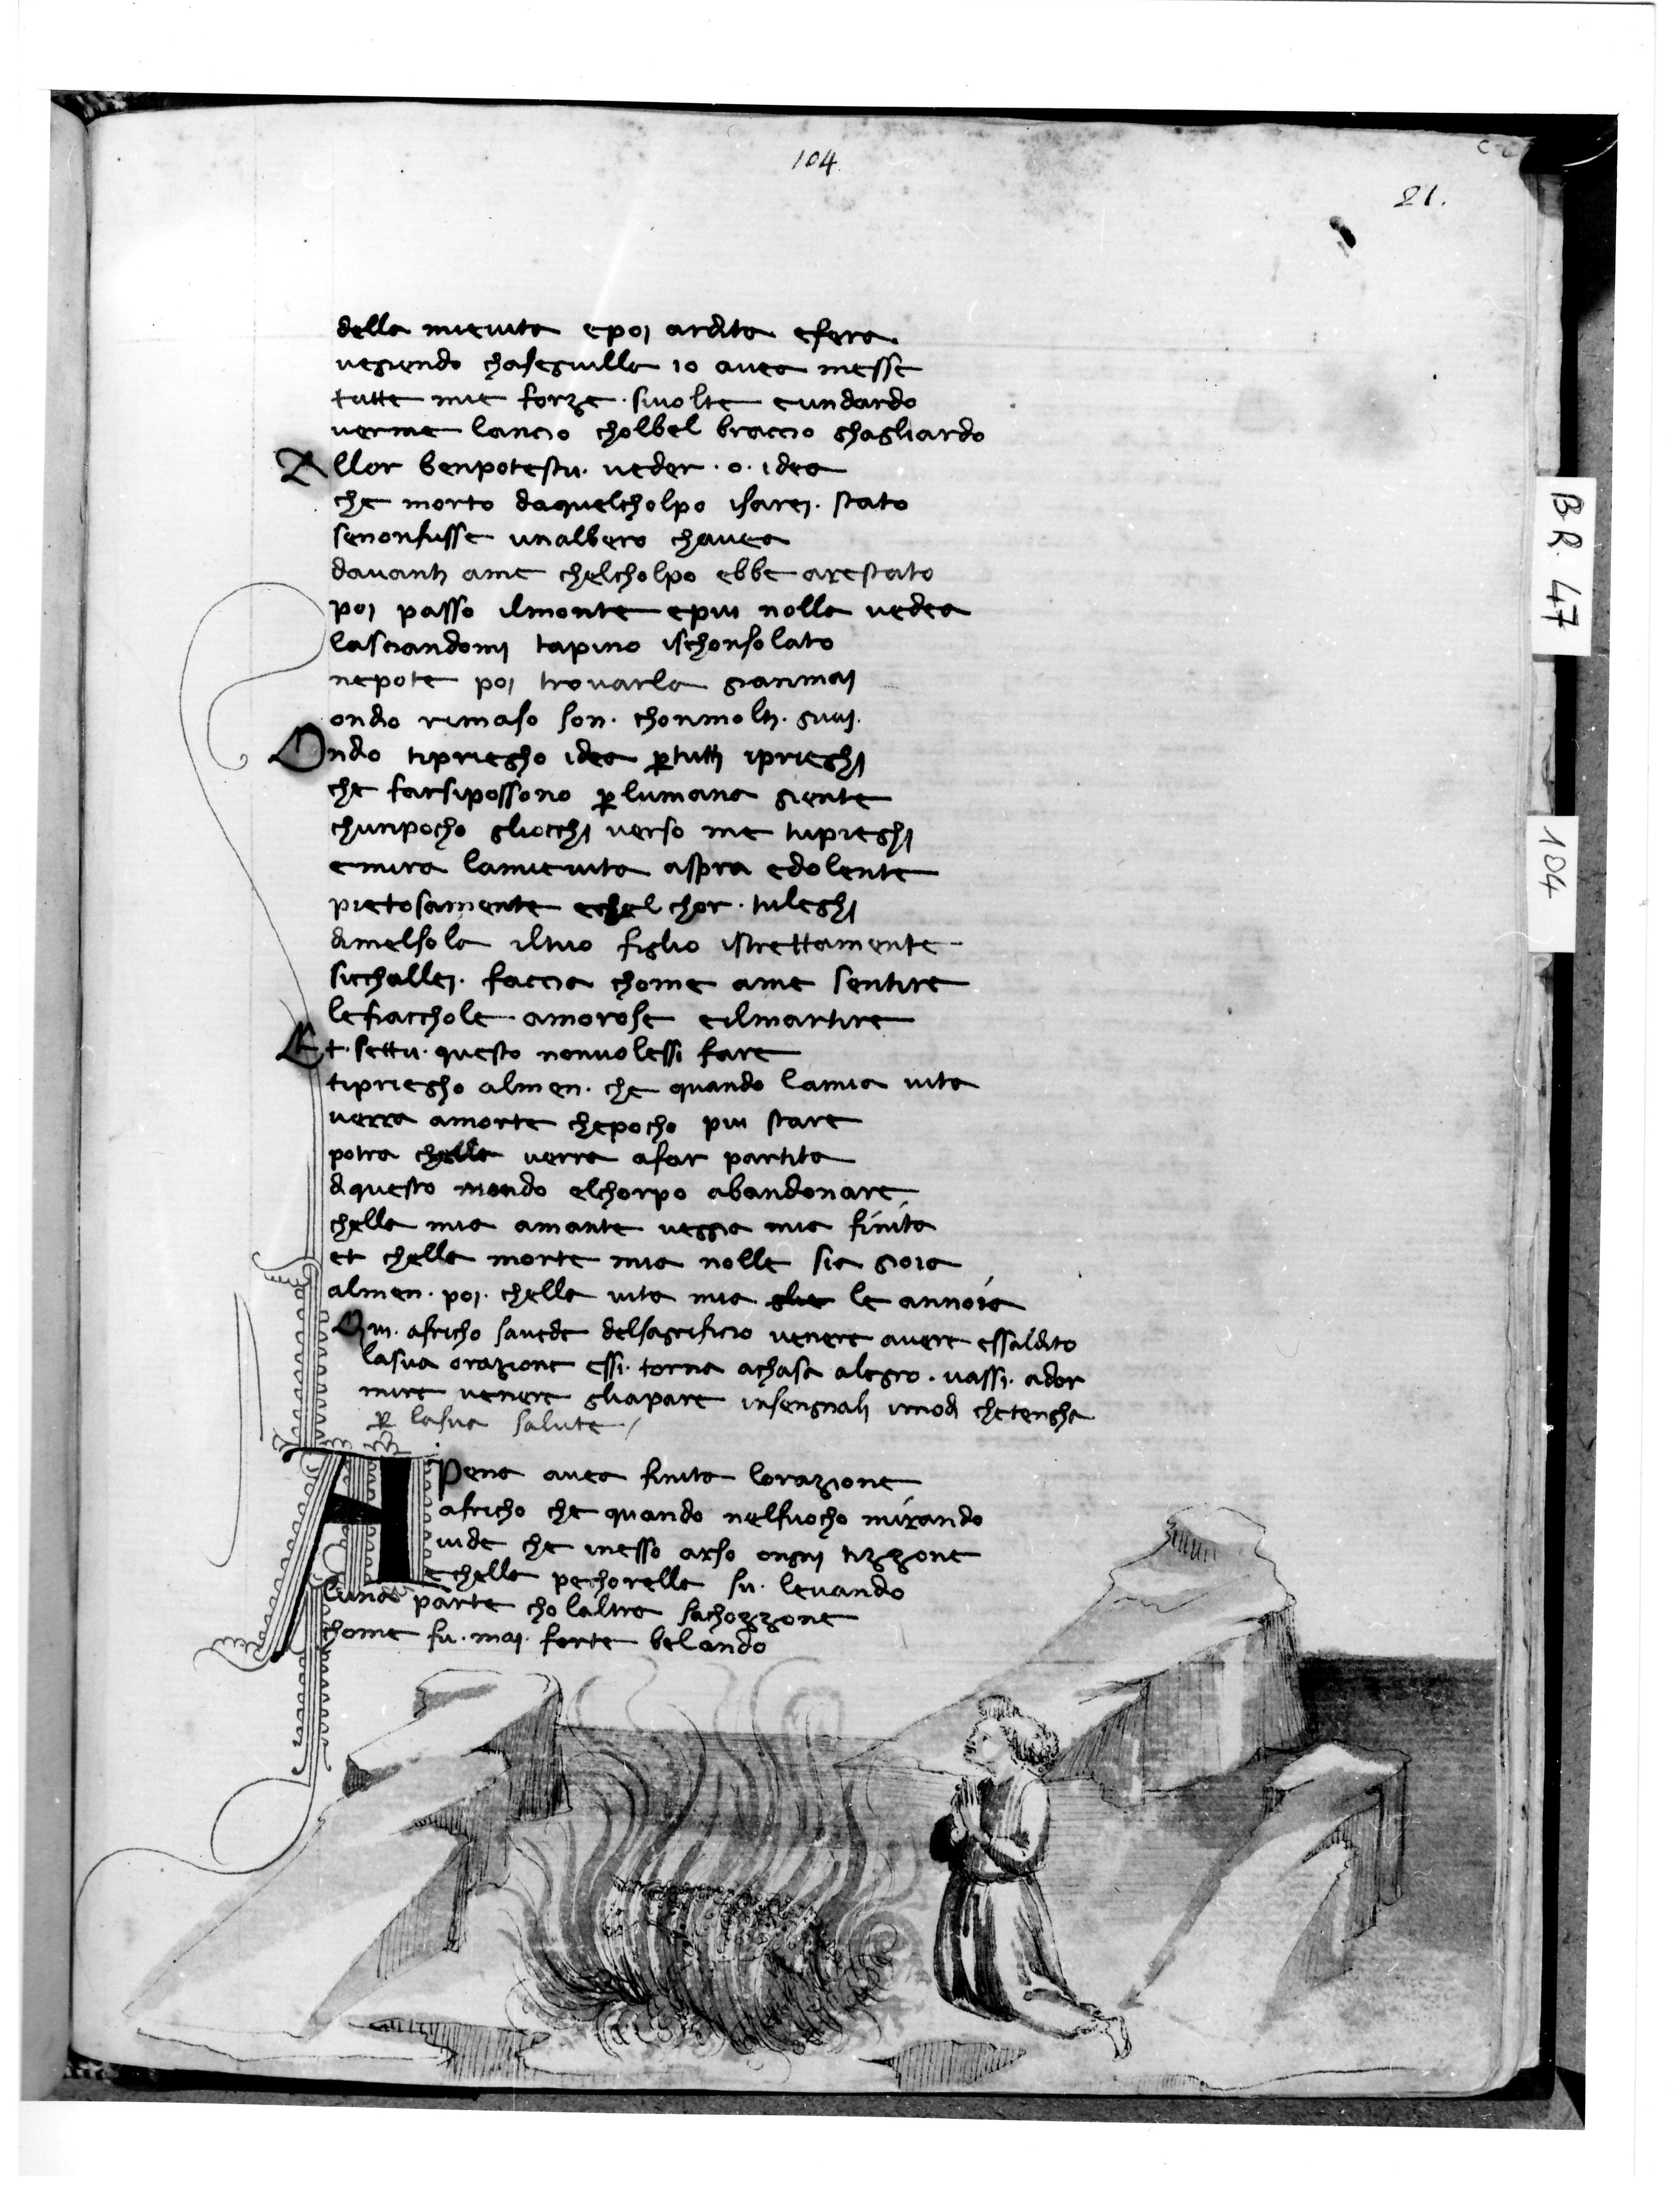 104
21.
della mie vita epoi ardita efera
vegiendo chaseguilla io avea messe
tutte mie forze · sivolte eundardo
verme lancio cholbel braccio ghagliardo
Allor benpotestu · veder · o · idea
che morto daquelcholpo isarei · stato
senonfusse unalbero chavea
davanti ame chelcholpo ebbe arestato
poi passo ilmonte epiu nolla vedea
lasciandomi tapino ischonsolato
nepote poi trovarla gianmai
ondio rimaso son · chonmolti · guai ·
Ondio tipriegho idea ꝑtutti iprieghi
che farsipossono ꝑ lumana giente
chunpocho gliocchi verso me tupieghi
emira lamievita aspra edolente
pietosamente echel chor · tuleghi
dimelsola iltuo figlio istrettamente
sicchallei · faccia chome ame sentire
lefiacchole amorose eilmartire
Et · settu · questo nonvolessi fare
tipriegho almen · che quando lamia vita
verra amorte chepocho piu stare
potra chella verra afar partita
diquesto mondo elchorpo abandonare
chella mia amante veggia mia finita
et chella morte mia nolle sia gioia
almen · poi · chella vita mia glie le annoia
Qui · africho savede delsagrificio venere avere essaldito
lasua orazione essi · torna achasa alegro · vassi · ador
mire venere gliapare insengnali imodi chetengha
ꝑ lasua salute /
Apena avea finita lorazione
africho che quando nelfuocho mirando
vide che inesso arso ongni tizzone
echella pechorella su · levando
luna parte cholaltra sachozzone
chome fu · mai · forte belando
BR. 47
104